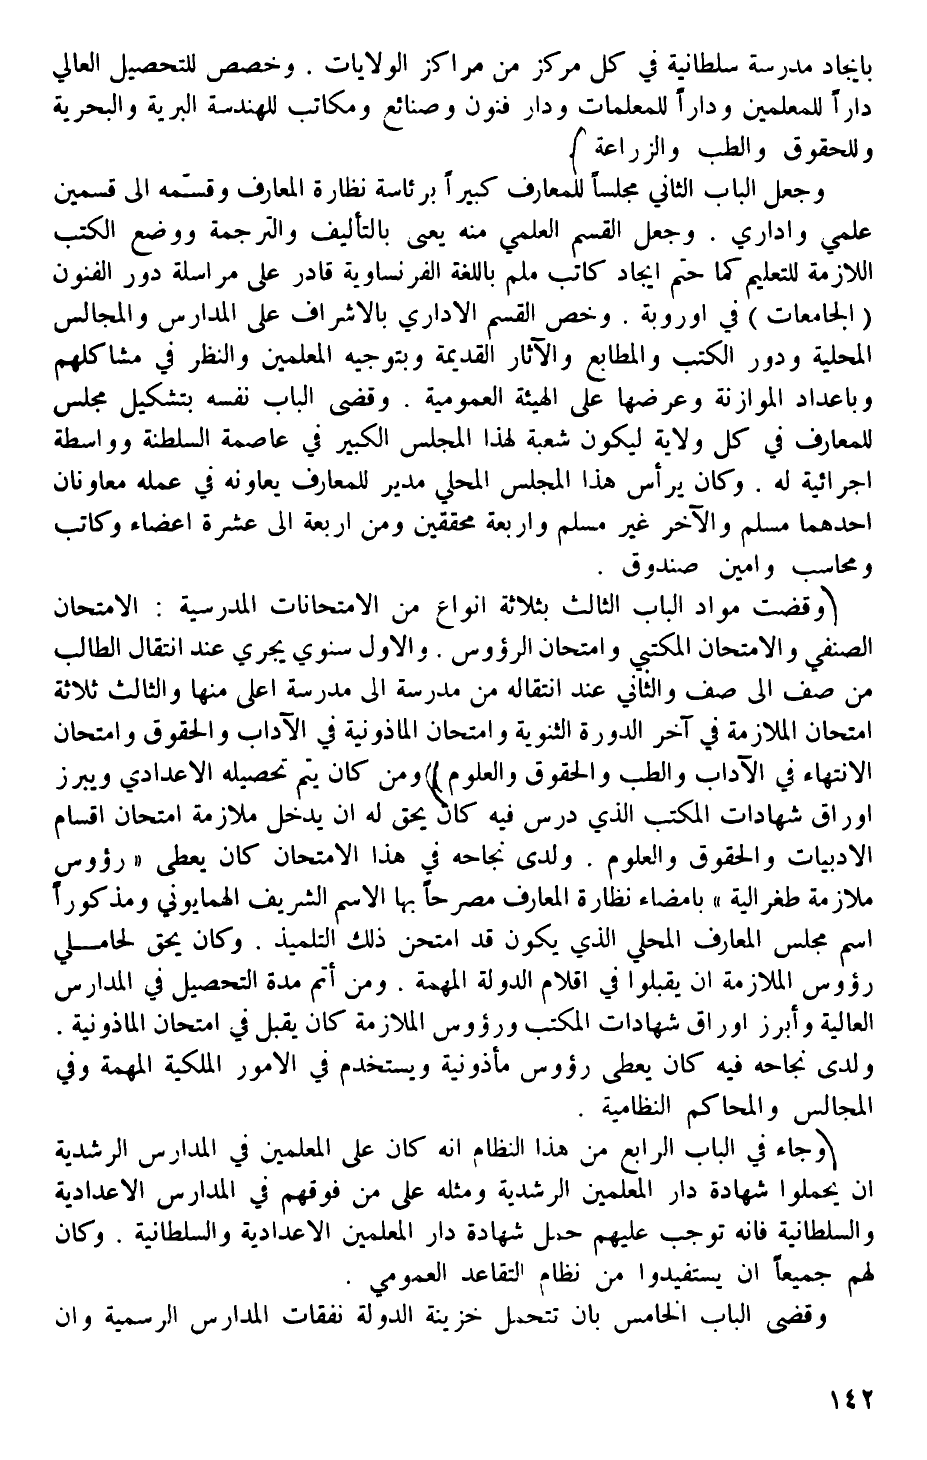 بايجاد مدرسة سلطانية في كل مركز من مراكز الولايات . وخصص للتحصيل العالي
داراً للمعلمين وداراً للمعلمات ودار فنون وصنائع ومكاتب للهندسة البرية والبحرية
وللحقوق والطب والزراعة )
وجعل الباب الثاني مجلساً للمعارف كبيراً برئاسة نظارة المعارف وقسّمه الى قسمين
علمي واداري . وجعل القسم العلمي منه يعى بالتأليف والترجمة ووضع الكتب
اللازمة للتعليم كما حتم ايجاد كاتب ملم باللغة الفرنساوية قادر على مراسلة دور الفنون
( الجامعات ) في اوروبة . وخص القسم الاداري بالاشراف على المدارس والمجالس
المحلية ودور الكتب والمطابع والآثار القديمة وبتوجيه المعلمين والنظر في مشاكلهم
وباعداد الموازنة وعرضها على الهيئة العمومية . وقضى الباب نفسه بتشكيل مجلس
للمعارف في كل ولاية ليكون شعبة لهذا المجلس الكبير في عاصمة السلطنة وواسطة
اجرائية له . وكان يرأس هذا المجلس المحلي مدير للمعارف يعاونه في عمله معاونان
احدهما مسلم والآخر غير مسلم واربعة محققين ومن اربعة الى عشرة اعضاء وكاتب
ومحاسب وامين صندوق .
(وقضت مواد الباب الثالث بثلاثة انواع من الامتحانات المدرسية : الامتحان
الصنفي والامتحان المكتبي وامتحان الرؤوس . والاول سنوي يجري عند انتقال الطالب
من صف الى صف والثاني عند انتقاله من مدرسة الى مدرسة اعلى منها والثالث ثلاثة
امتحان الملازمة في آخر الدورة الثنوية وامتحان الماذونية في الآداب والحقوق وامتحان
الانتهاء في الآداب والطب والحقوق والعلوم )(ومن كان يتم تحصيله الاعدادي ويبرز
اوراق شهادات المكتب الذي درس فيه كان يحق له ان يدخل ملازمة امتحان اقسام
الادبيات والحقوق والعلوم . ولدى نجاحه في هذا الامتحان كان يعطى « رؤوس
ملازمة طغرالية » بامضاء نظارة المعارف مصرحاً بها الاسم الشريف الهمايوني ومذكوراً
اسم مجلس المعارف المحلي الذي يكون قد امتحن ذلك التلميذ . وكان يحق لحامـلي
رؤوس الملازمة ان يقبلوا في اقلام الدولة المهمة . ومن أتم مدة التحصيل في المدارس
العالية وأبرز اوراق شهادات المكتب ورؤوس الملازمة كان يقبل في امتحان الماذونية .
ولدى نجاحه فيه كان يعطى رؤوس مأذونية ويستخدم في الامور الملكية المهمة وفي
المجالس والمحاكم النظامية .
(وجاء في الباب الرابع من هذا النظام انه كان على المعلمين في المدارس الرشدية
ان يحملوا شهادة دار المعلمين الرشدية ومثله على من فوقهم في المدارس الاعدادية
والسلطانية فانه توجب عليهم حمل شهادة دار المعلمين الاعدادية والسلطانية . وكان
لهم جميعاً ان يستفيدوا من نظام التقاعد العمومي .
وقضى الباب الخامس بان تتحمل خزينة الدولة نفقات المدارس الرسمية وان
١٤٢